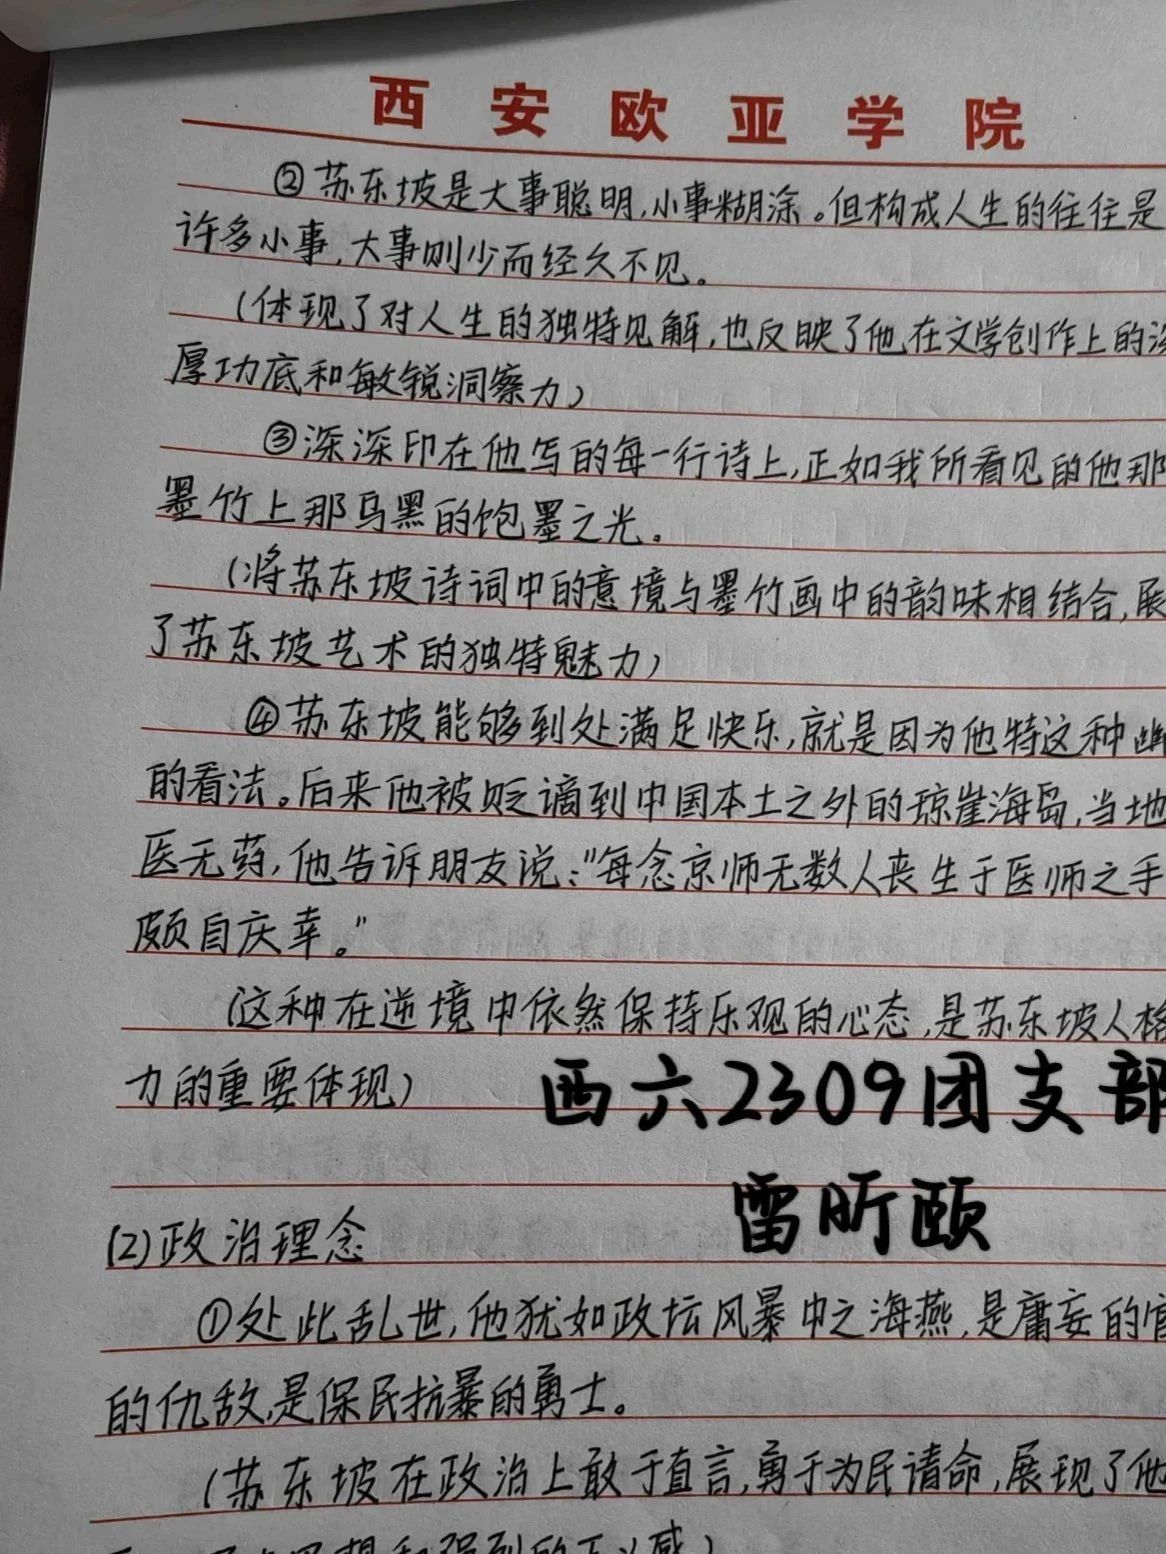 西安欧亚学院
②苏东坡是大事聪明,小事糊涂。但构成人生的往往是
许多小事,大事则少而经久不见。
(体现了对人生的独特见解,也反映了他在文学创作上的
厚功底和敏锐洞察力)
③深深印在他写的每一行诗上,正如我所看见的他那
墨竹上那乌黑的饱墨之光。
(将苏东坡诗词中的意境与墨竹画中的韵味相结合,展
了苏东坡艺术的独特魅力)
④苏东坡能够到处满足快乐,就是因为他特这种幽
的看法。后来他被贬谪到中国本土之外的琼崖海岛,当地
医无药,他告诉朋友说:"每念京师无数人丧生于医师之手
颇自庆幸。"
(这种在逆境中依然保持乐观的心态,是苏东坡人格
力的重要体现)
西六2309团支部
雷昕颐
(2)政治理念
①处此乱世,他犹如政坛风暴中之海燕,是庸妄的官
的仇敌,是保民抗暴的勇士。
(苏东坡在政治上敢于直言,勇于为民请命,展现了他
思想和强烈的正义感)